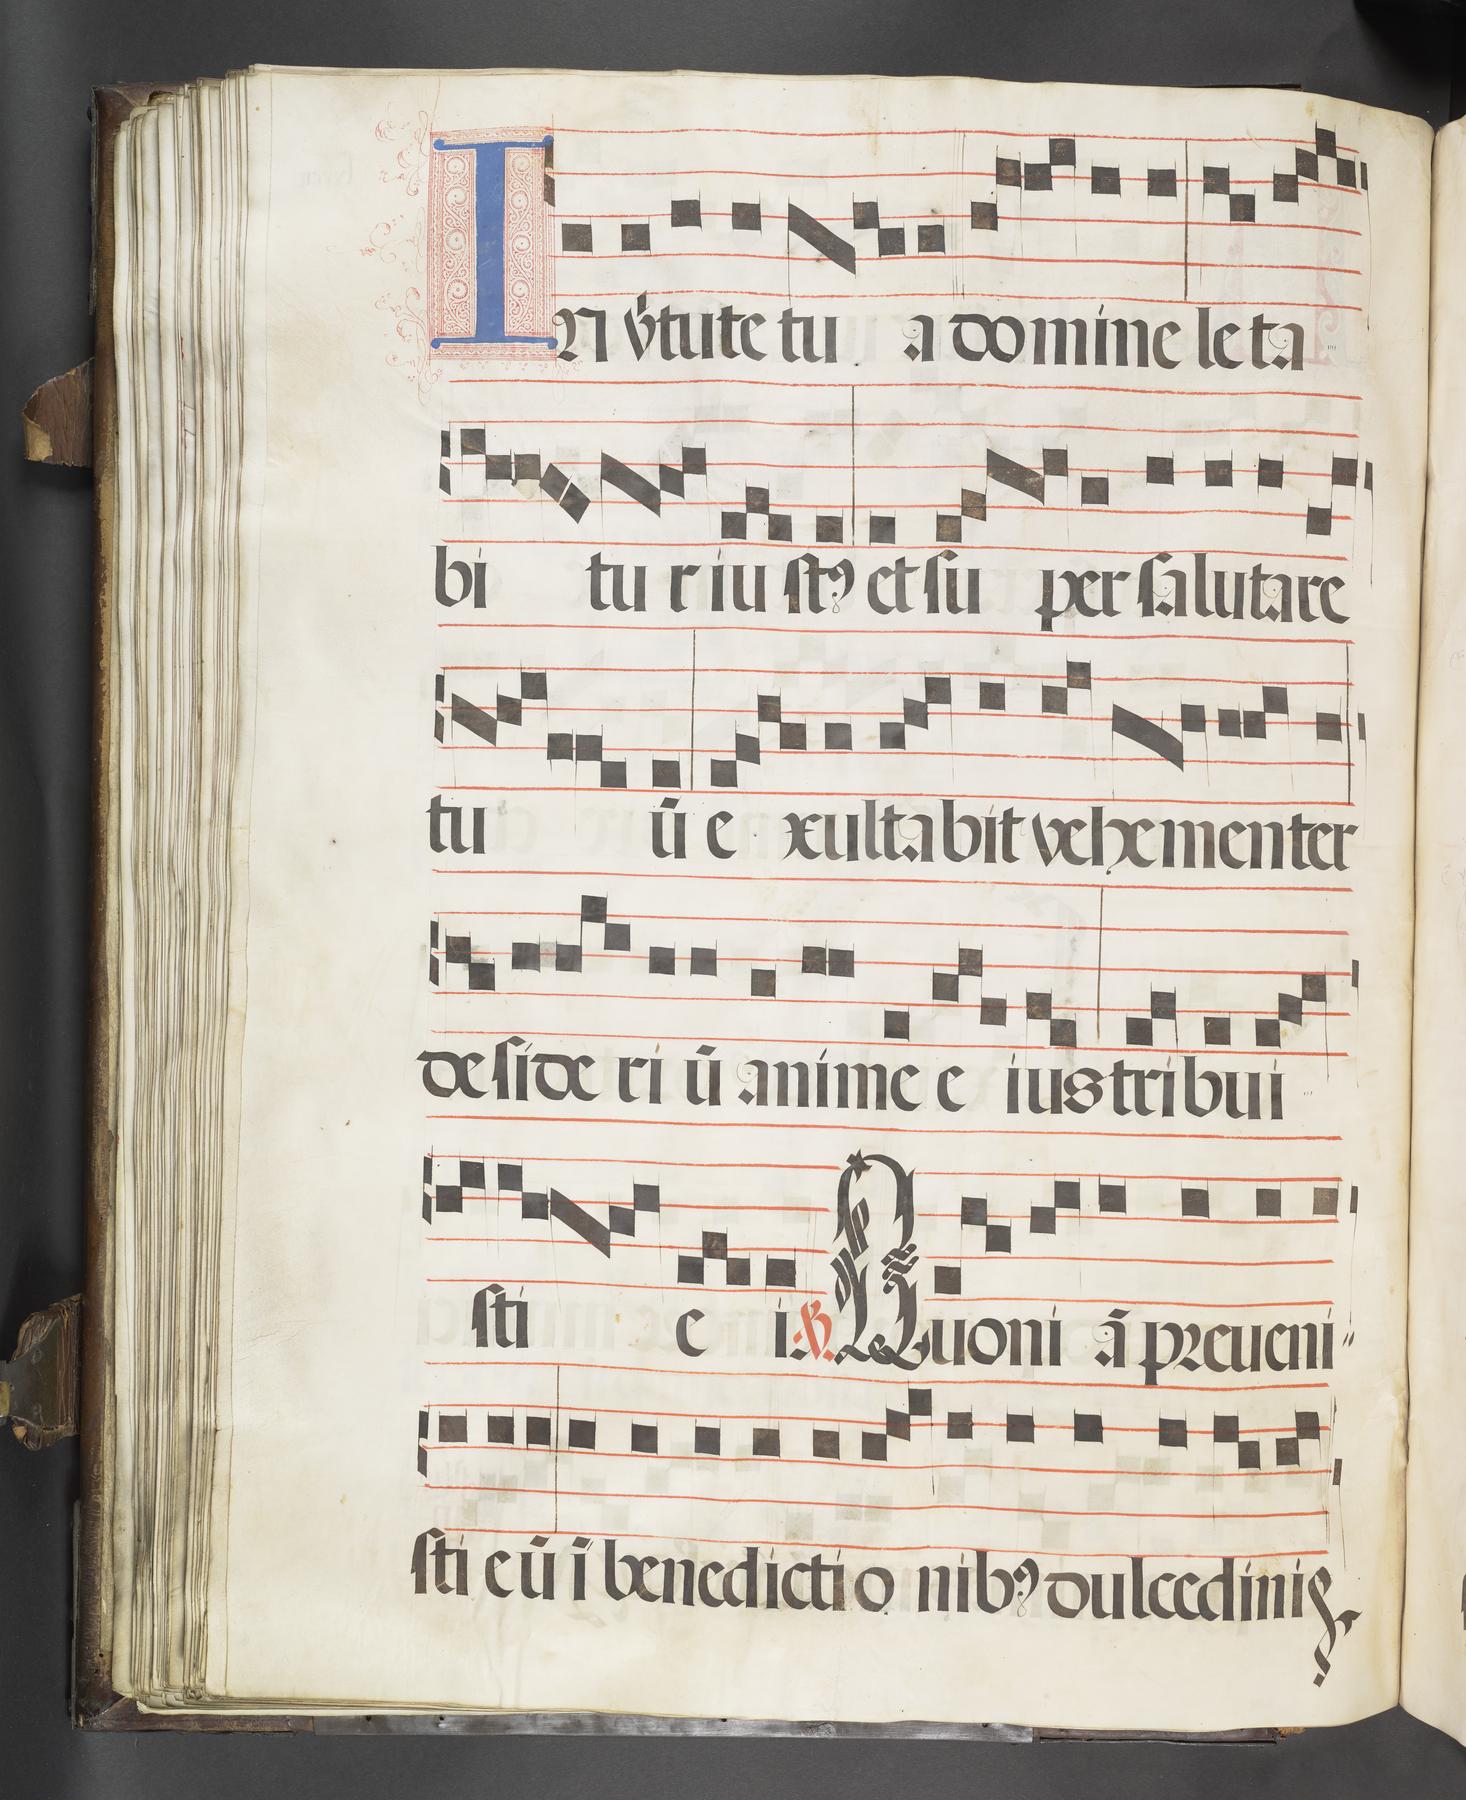 In v̓tute tu a domine leta
bi tur iustꝰ et su per salutare
tu ū e xultabit vehementer
deside ri ū anime e ius tribui
sti e i ℟. Quoni ā preueni
sti eū ī benedictio nibꝰ dulcedinis